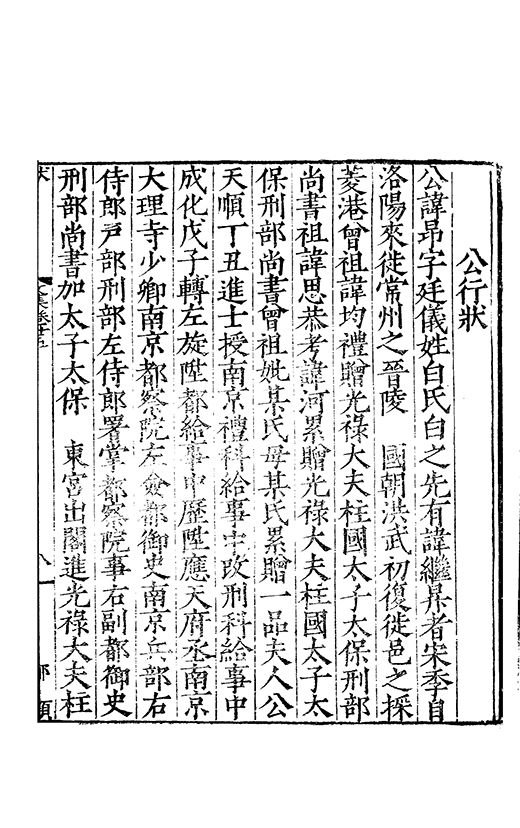 公行狀
公諱昂字廷儀姓白氏白之先有諱繼昇者宋季自
洛陽來徙常州之晉陵　國朝洪武初復徙邑之採
菱港曾祖諱均禮贈光祿大夫柱國太子太保刑部
尚書祖諱思恭考諱河累贈光祿大夫柱國太子太
保刑部尚書曾祖妣某氏母某氏累贈一品夫人公
天順丁丑進士授南京禮科給事中改刑科給事中
成化戊子轉左旋陞都給事中歷陞應天府丞南京
大理寺少卿南京都察院左僉都御史南京兵部右
侍郎戸部刑部左侍郎署掌都察院事右副都御史
刑部尚書加太子太保　東宮出閣進光祿大夫柱
八